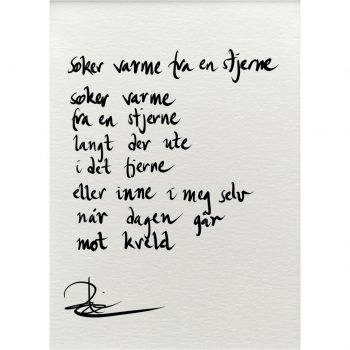 søker varme fra en stjerne
søker varme
fra en stjerne
langt der ute
i det fjerne
eller inne i meg selv
når dagen går
mot kveld